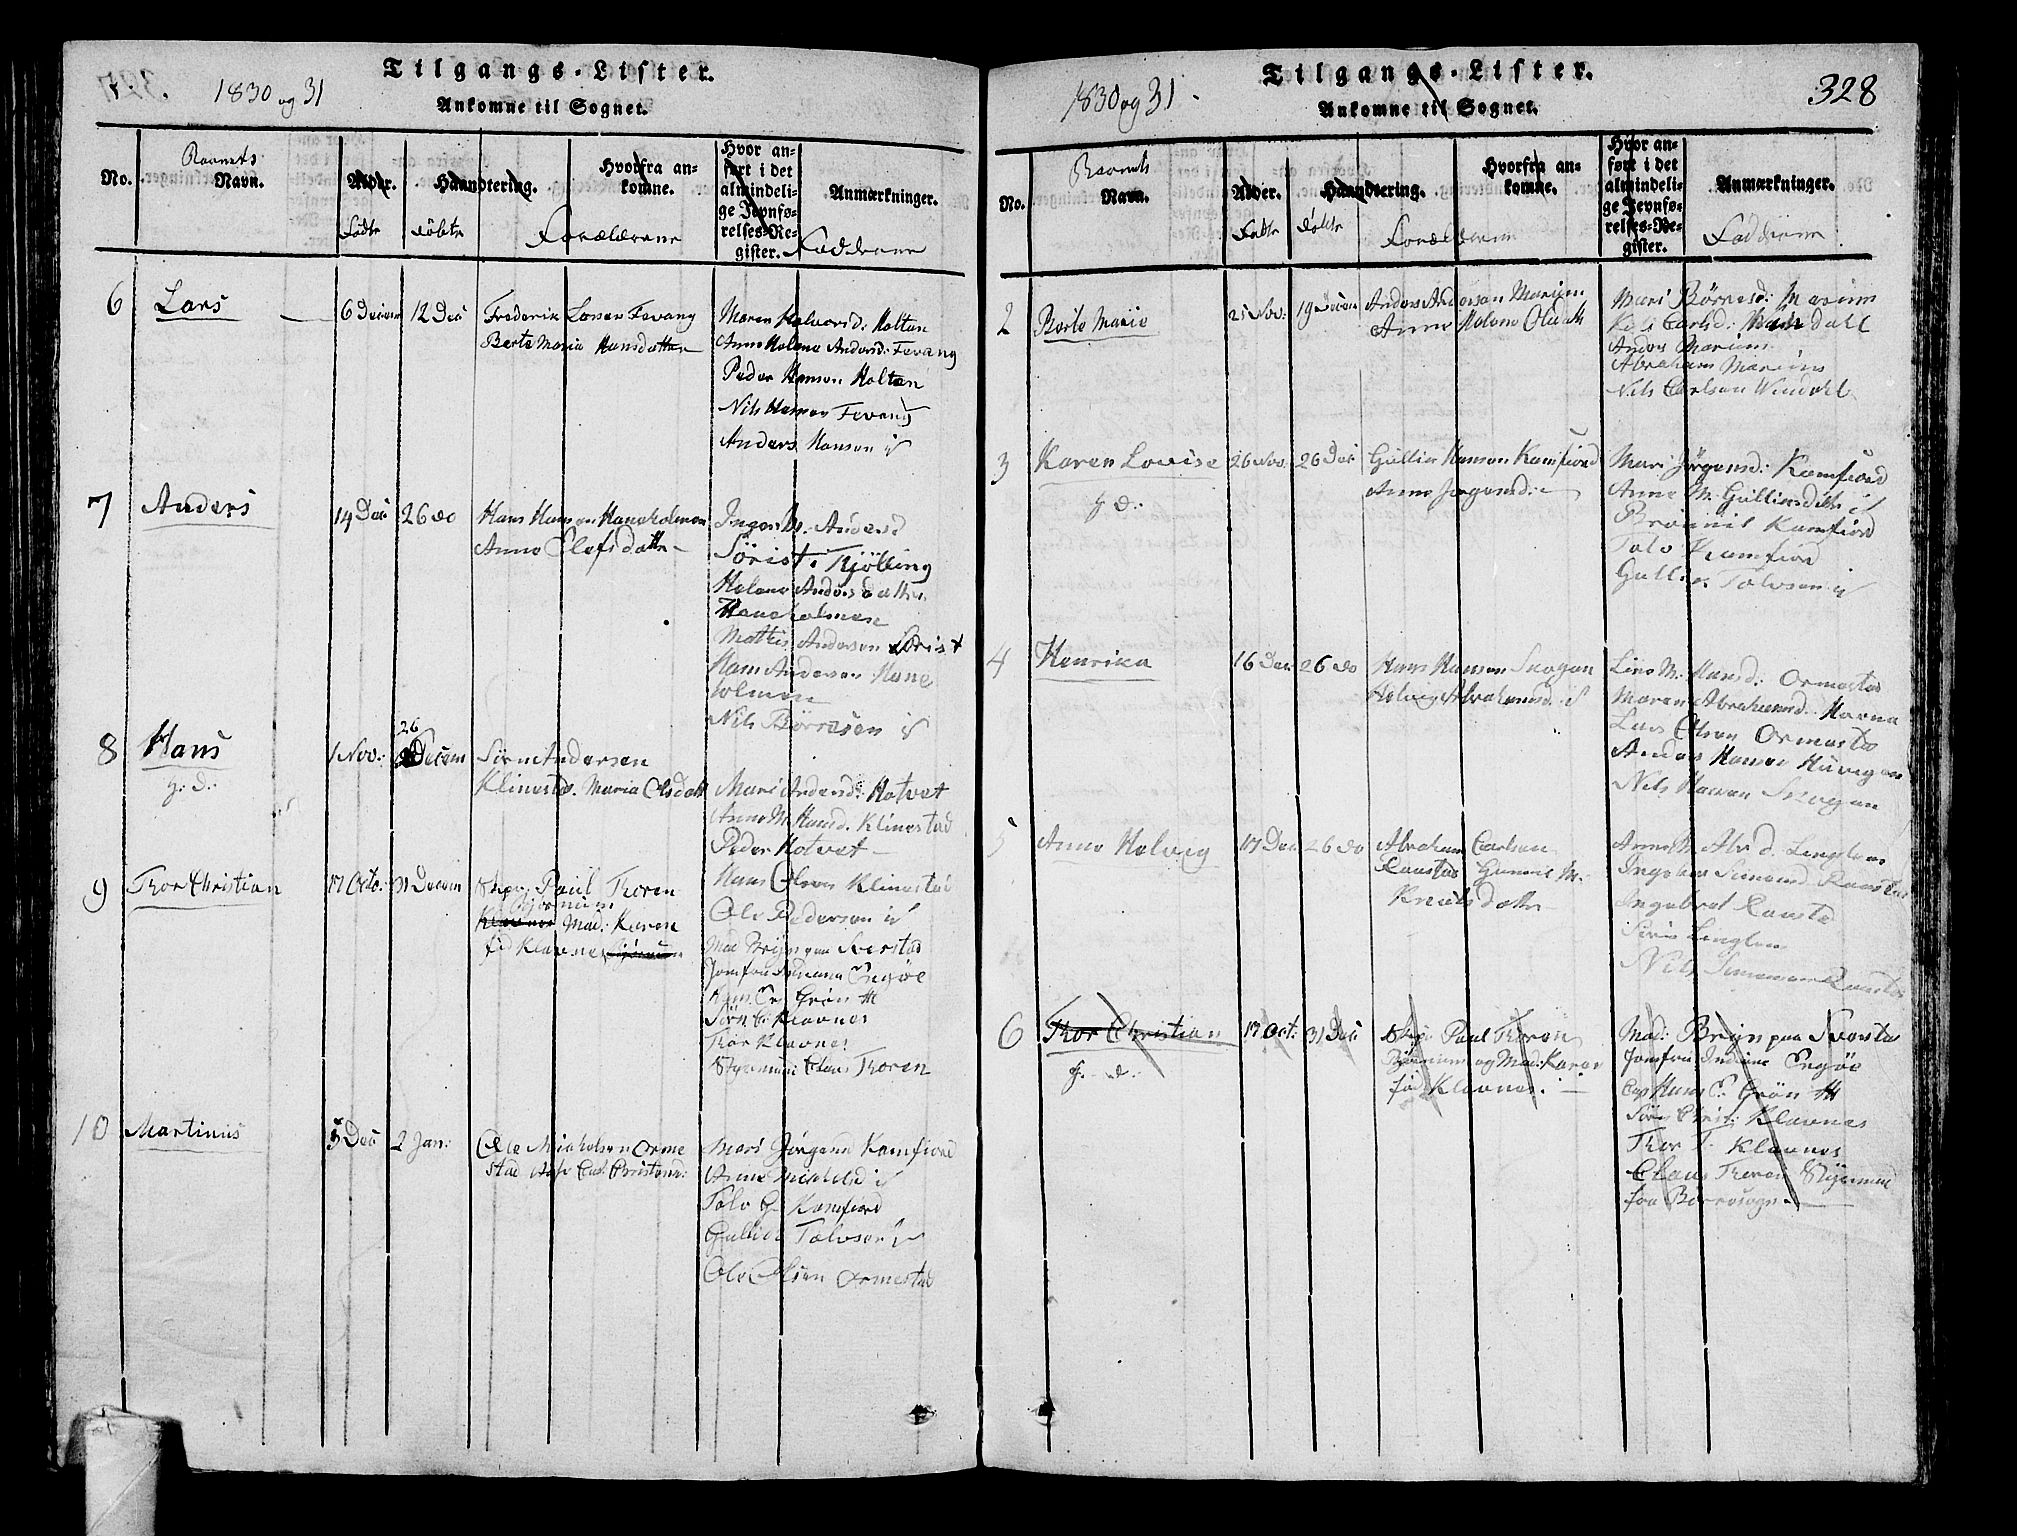 1830 og 31
Tilgangs-Lister.
Ankomne til Sognet.
No.
Barnets
Navn.
Alder.
Fødte
Haandtering.
Døbte
Hvorfra an-
komne.
Forældrene
Hvor an-
ført i det
almindeli-
ge Jevnfø-
relses-Re-
gister.
Anmærkninger.
Faddrene
6 Lars
6 Decem 12 Dec
Frederik Larsen Fevang
Berte Maria Hansdatter
Maren Halvorsd: Holtan
Anne Helene Andersd: Fevang
Peder Hansen Holtan
Nils Hansen Fevang
Anders Hansen
7 Anders
14 Dec 26 do
Hans Hansen Haneholmen
Anne Olefsdatte
Andersd
Sørist. Tjølling
Helene Andersdatter
Haneholmen
Mathis Andersen Sørist
Hans Andersen Hane
holmen
Nils Børresen
8 Hans
g. d.
1 Nov: 26 Decem
Søren Andersen
Klinestad. Maria Olsdatt
Mari Andersd: Hotvet
Anne M. Hansd. Klinestad
Peder Hotvet
Hans Olsen Klinestad
Ole Pedersen
9 Thor Christian
17 Octo: 31 Decem
Skpr: Paul Thoren
Bjørnum
Klavnes Mad: Karen
fød Klavnes
Mad Bryn paa Seerstad
Jomfru Indiana Engøe
Hans C. Grøn
Sørn C. Klavnes
Thor Klavnes
Styrmand Claus Thoren
10 Martinus
5 Dec 2 Jan:
Ole Michelsen Orme
stad
Mari Jørgens Kamfiord
Anne Michelsd
Tolv G. Kamfiord
Gullic Tolvsen
Ole Olsen Ormestad
1830 og 31
Tilgangs-Lister.
Ankomne til Sognet.
328
No.
Barnets
Navn.
Alder.
Fødte
Haandtering.
Døbte
Hvorfra an-
komne.
Forældrene
Hvor an-
ført i det
almindeli-
ge Jevnfø-
relses-Re-
gister.
Anmærkninger.
Faddrene
2 Berte Marie
25 Nov: 19 Decem
Anders Andersen Marium
Anne Helene Olsdtt
Mari Børresd: Marium
Carlsd:
Anders Marium
Abraham Marium
Nils Carlsen Vindahl
3 Karen Lovise
g d.
26 Nov. 26 Dec
Gullic Hansen Kamfiord
Anne Jørgensd:
Mari Jørgensd: Kamfiord
Anne M. Gullicsdtte
Kamfiord
Tolv Kamfior
Gullic Tolvsen
4 Henrika
16 Dec 26 do
Hans Hansen Skogan
Helvig Abrahamsd.
Line M. Hansd: Ormestad
Maren Abrahamsd. Havna
Lars Olsen Ormestad
Anders Hansen
Nils Hansen Skogan
5 Anne Helvig
17 Dec 26 do
Abraham Carlsen
Raastad Gunnil M.
Knutsdatter
Anne M. Abrd. Lingelem
Ingeborg Simensd Raastad
Ingebret Raastad
Nils Simensen Raastad
6 Thor Christian
g. d.
17 Oct: 31 Dec
Skpr: Paul Thoren
Bjørnum og Mad: Karen
fød Klavnes.
Mad: Bryn paa Seerstad
Jomfru Indiane Engøe
Cap Hans C. Grøn
Sørn Christ: Klavnes
Thor Klavnes
Claus Thoren Styrmand
fra Borresogn